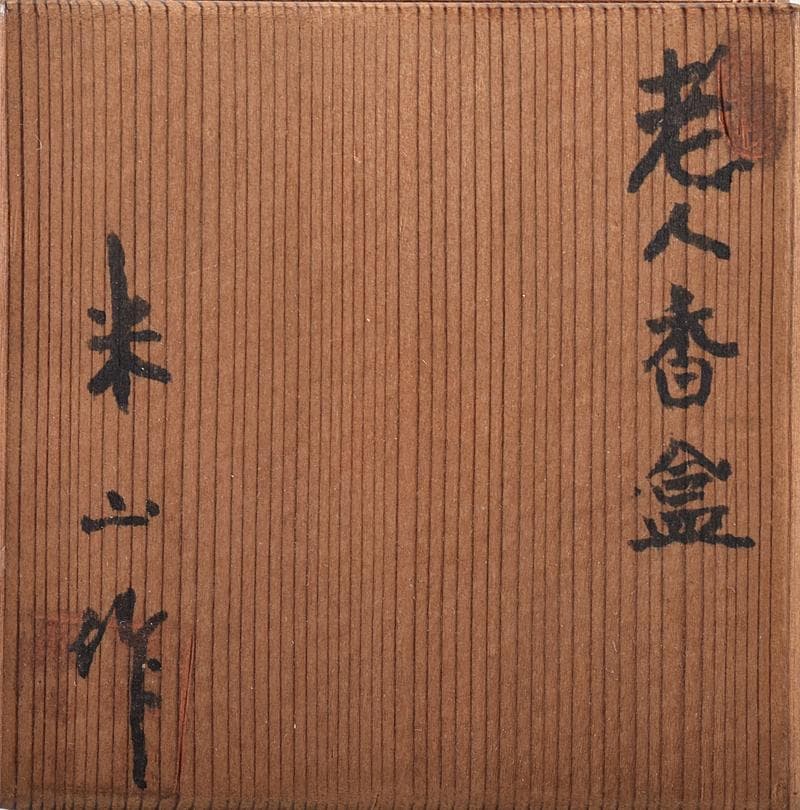 老人香盒
米山作